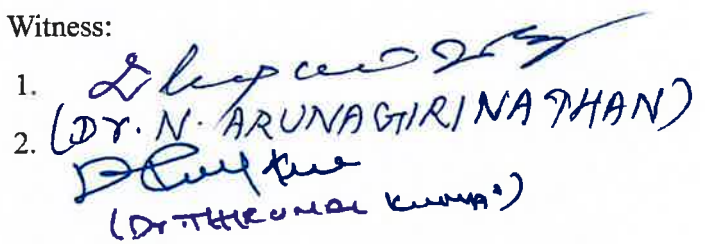 Witness:
1.
(Dr. N. ARUNAGIRINATHAN)
2.
(Dr THIRUMAL KUMAR)